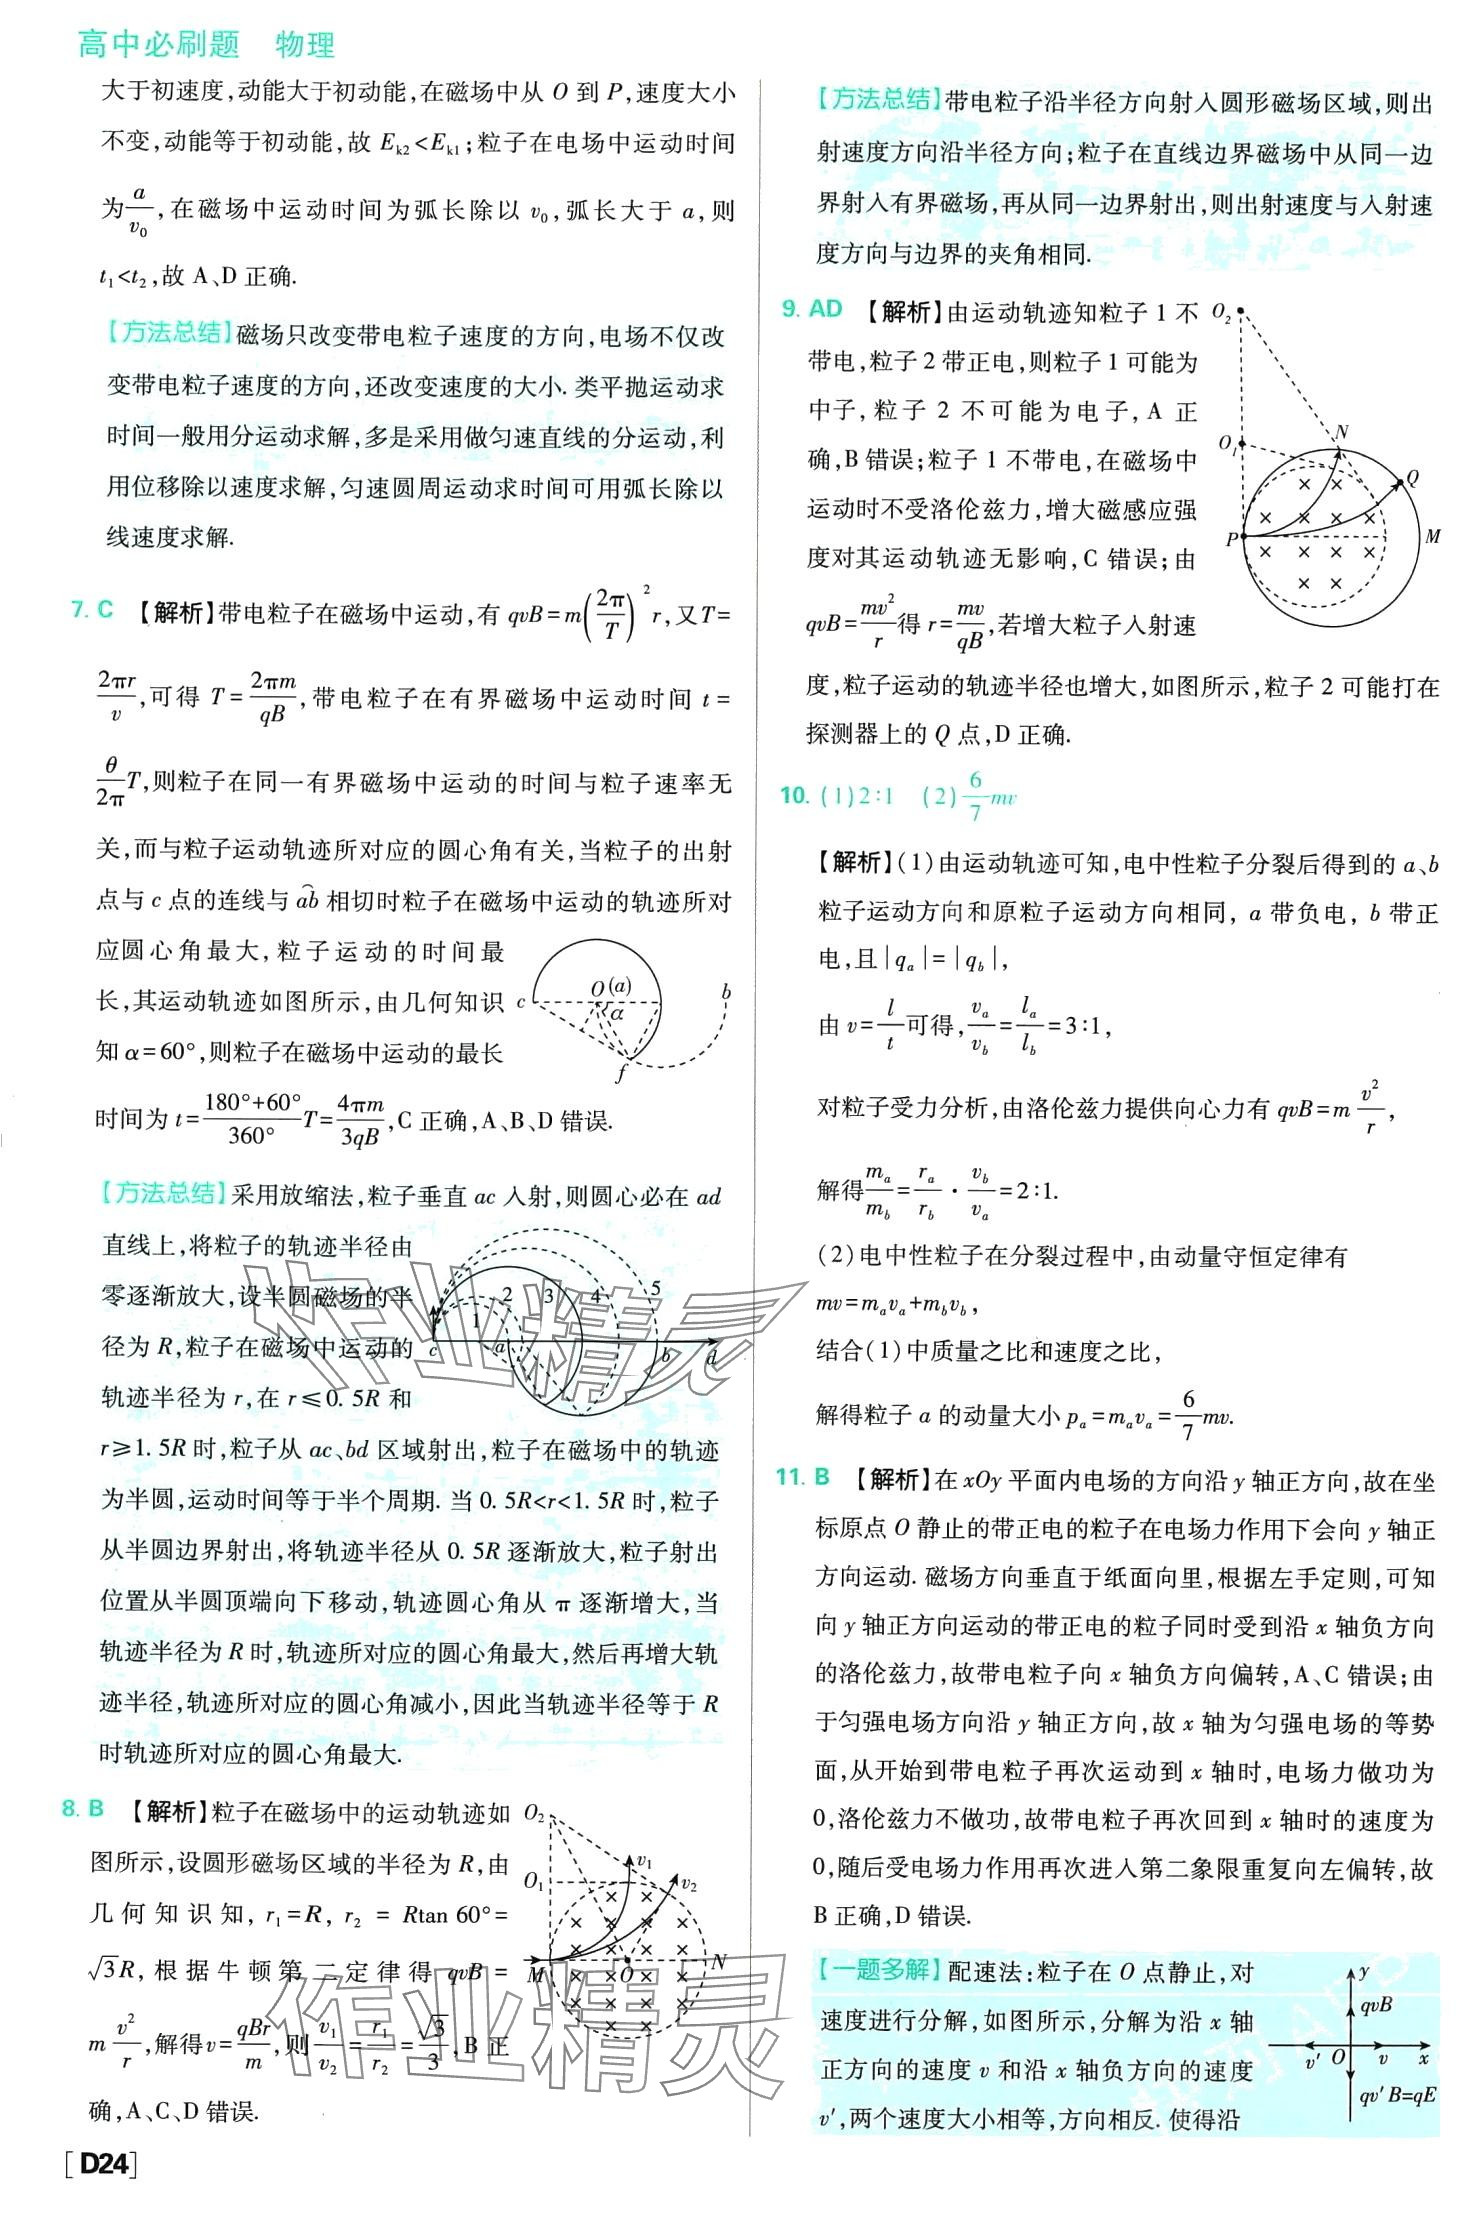 高中必刷题 物理
大于初速度,动能大于初动能,在磁场中从 O 到 P,速度大小
不变,动能等于初动能,故 E_k2<E_k1;粒子在电场中运动时间
为 a/v₀,在磁场中运动时间为弧长除以 v₀,弧长大于 a,则
t₁<t₂,故 A、D 正确.
【方法总结】磁场只改变带电粒子速度的方向,电场不仅改
变带电粒子速度的方向,还改变速度的大小. 类平抛运动求
时间一般用分运动求解,多是采用做匀速直线的分运动,利
用位移除以速度求解,匀速圆周运动求时间可用弧长除以
线速度求解.
7. C 【解析】带电粒子在磁场中运动,有 qvB=m(2π/T)²r,又 T=
2πr/v,可得 T=2πm/qB,带电粒子在有界磁场中运动时间 t=
θ/2π T,则粒子在同一有界磁场中运动的时间与粒子速率无
关,而与粒子运动轨迹所对应的圆心角有关,当粒子的出射
点与 c 点的连线与 ab⌒ 相切时粒子在磁场中运动的轨迹所对
应圆心角最大,粒子运动的时间最
长,其运动轨迹如图所示,由几何知识
知 α=60°,则粒子在磁场中运动的最长
时间为 t=(180°+60°)/360° T=4πm/3qB,C 正确,A、B、D 错误.
c O (a) α b f
【方法总结】采用放缩法,粒子垂直 ac 入射,则圆心必在 ad
直线上,将粒子的轨迹半径由
零逐渐放大,设半圆磁场的半
径为 R,粒子在磁场中运动的
轨迹半径为 r,在 r≤0.5R 和
r≥1.5R 时,粒子从 ac、bd 区域射出,粒子在磁场中的轨迹
为半圆,运动时间等于半个周期. 当 0.5R<r<1.5R 时,粒子
从半圆边界射出,将轨迹半径从 0.5R 逐渐放大,粒子射出
位置从半圆顶端向下移动,轨迹圆心角从 π 逐渐增大,当
轨迹半径为 R 时,轨迹所对应的圆心角最大,然后再增大轨
迹半径,轨迹所对应的圆心角减小,因此当轨迹半径等于 R
时轨迹所对应的圆心角最大.
1 2 3 4 5
c a b d
8. B 【解析】粒子在磁场中的运动轨迹如
图所示,设圆形磁场区域的半径为 R,由
几何知识知,r₁=R,r₂=Rtan 60°=
√3R,根据牛顿第二定律得 qvB=
m v²/r,解得 v=qBr/m,则 v₁/v₂=r₁/r₂=√3/3,B 正
确,A、C、D 错误.
O₂ O₁ v₁ v₂ M O N
[D24]
【方法总结】带电粒子沿半径方向射入圆形磁场区域,则出
射速度方向沿半径方向;粒子在直线边界磁场中从同一边
界射入有界磁场,再从同一边界射出,则出射速度与入射速
度方向与边界的夹角相同.
9. AD 【解析】由运动轨迹知粒子 1 不
带电,粒子 2 带正电,则粒子 1 可能为
中子,粒子 2 不可能为电子,A 正
确,B 错误;粒子 1 不带电,在磁场中
运动时不受洛伦兹力,增大磁感应强
度对其运动轨迹无影响,C 错误;由
qvB=mv²/r 得 r=mv/qB,若增大粒子入射速
度,粒子运动的轨迹半径也增大,如图所示,粒子 2 可能打在
探测器上的 Q 点,D 正确.
O₂ O₁ N Q P M
10. (1)2∶1 (2)6/7 mv
【解析】(1)由运动轨迹可知,电中性粒子分裂后得到的 a、b
粒子运动方向和原粒子运动方向相同,a 带负电,b 带正
电,且|q_a|=|q_b|,
由 v=l/t 可得,v_a/v_b=l_a/l_b=3∶1,
对粒子受力分析,由洛伦兹力提供向心力有 qvB=m v²/r,
解得 m_a/m_b=r_a/r_b·v_b/v_a=2∶1.
(2)电中性粒子在分裂过程中,由动量守恒定律有
mv=m_a v_a+m_b v_b,
结合(1)中质量之比和速度之比,
解得粒子 a 的动量大小 p_a=m_a v_a=6/7 mv.
11. B 【解析】在 xOy 平面内电场的方向沿 y 轴正方向,故在坐
标原点 O 静止的带正电的粒子在电场力作用下会向 y 轴正
方向运动. 磁场方向垂直于纸面向里,根据左手定则,可知
向 y 轴正方向运动的带正电的粒子同时受到沿 x 轴负方向
的洛伦兹力,故带电粒子向 x 轴负方向偏转,A、C 错误;由
于匀强电场方向沿 y 轴正方向,故 x 轴为匀强电场的等势
面,从开始到带电粒子再次运动到 x 轴时,电场力做功为
0,洛伦兹力不做功,故带电粒子再次回到 x 轴时的速度为
0,随后受电场力作用再次进入第二象限重复向左偏转,故
B 正确,D 错误.
【一题多解】配速法:粒子在 O 点静止,对
速度进行分解,如图所示,分解为沿 x 轴
正方向的速度 v 和沿 x 轴负方向的速度
v′,两个速度大小相等,方向相反. 使得沿
y qvB v′ O v x qv′B=qE
作业精灵
作业精灵